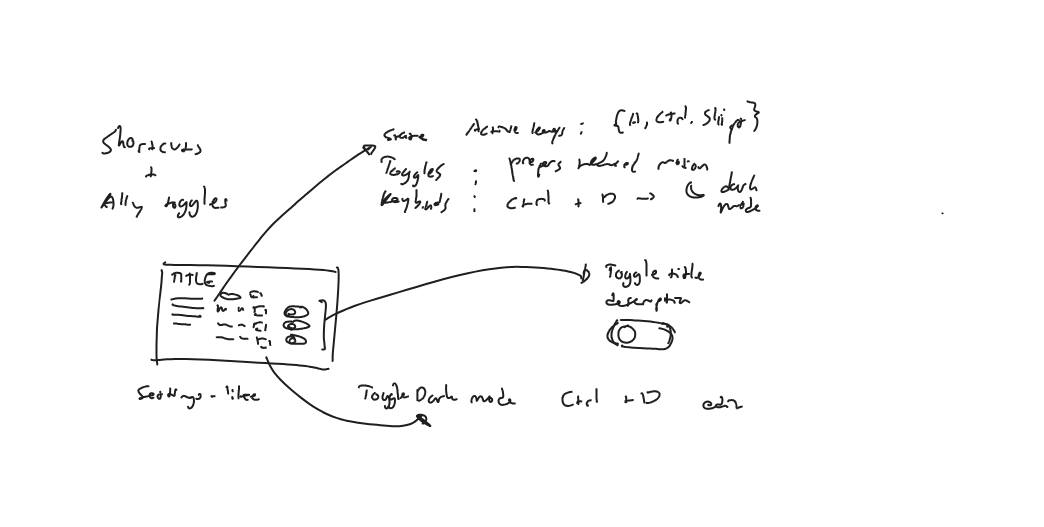 Shortcuts
+
A11y toggles
State Active keys : {A, Ctrl. Shift}
Toggles : prefers reduced motion
Keybinds : Ctrl + D → dark mode
TITLE
Toggle title
description
Settings-like
Toggle Dark mode Ctrl + D edit